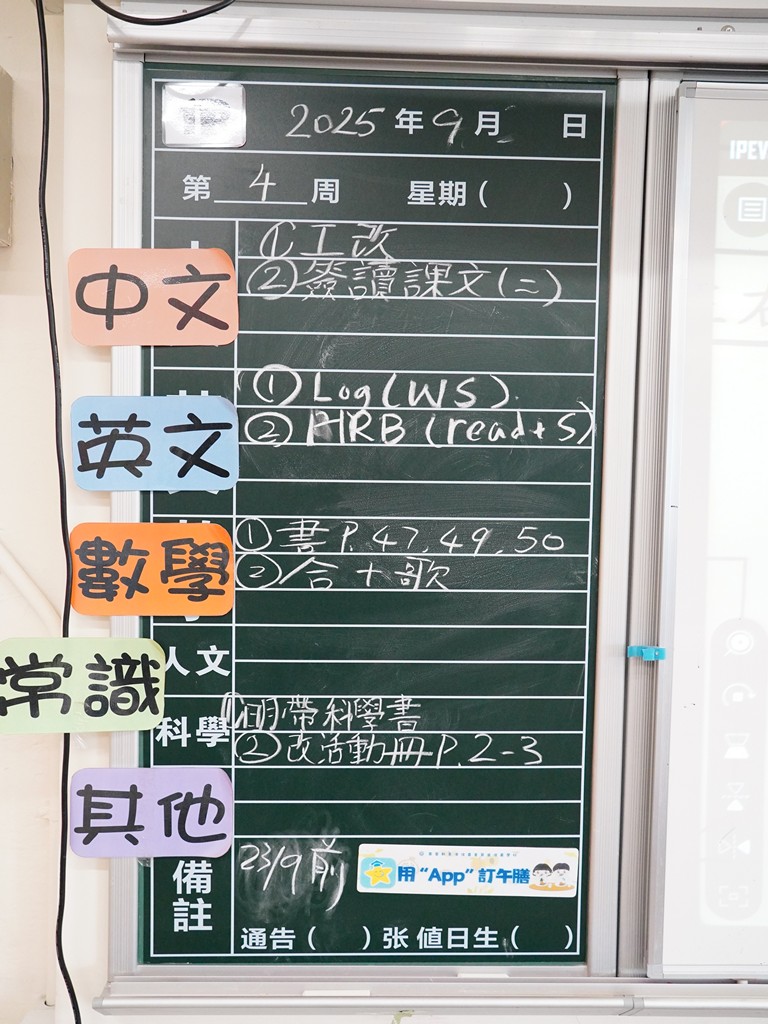 2025年9月 日
第 4 周 星期( )
中文
①工改
②簽讀課文(二)
英文
① Log(WS).
② HRB (read+S)
數學
①書P.47,49,50
②合十歌
常識
人文
科學
①明帶科學書
②改活動冊P.2-3
其他
備註
23/9前
用“App”訂午膳
通告( )张 值日生( )
IPEV